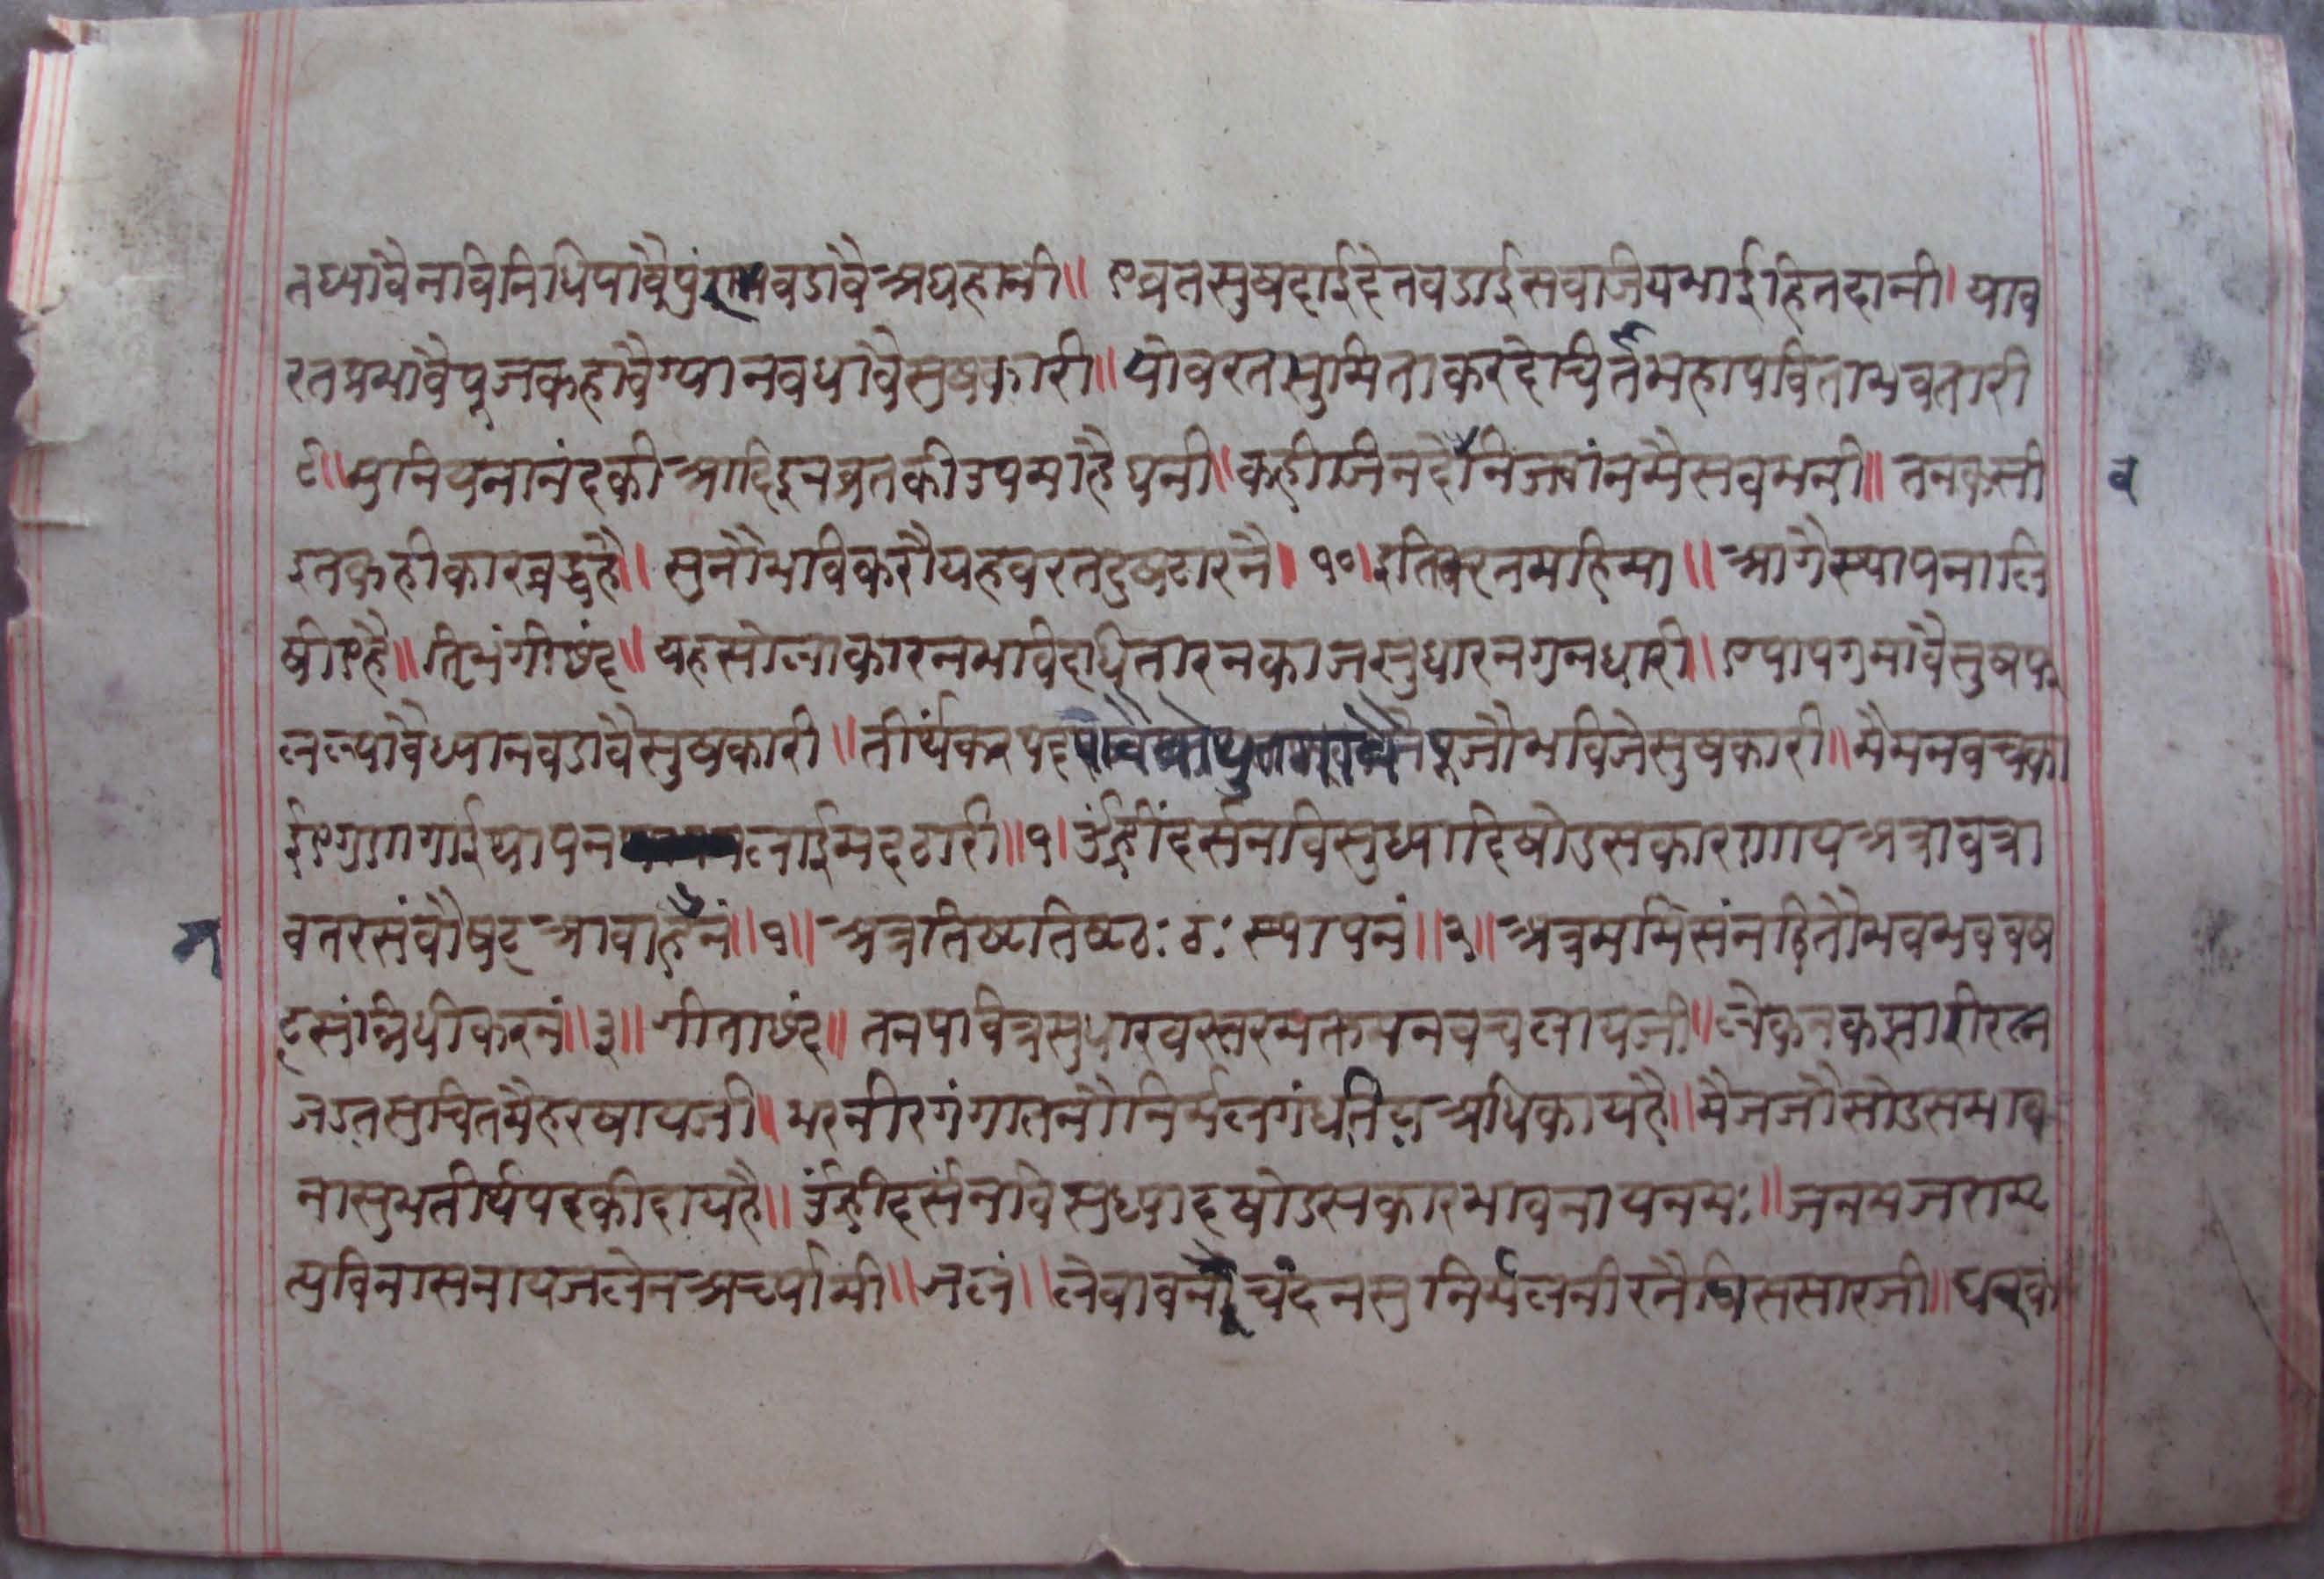 तध्यावैनाविनिधिपावैपुंरामवडावैअघहानी॥ एव्रतसुषदाईदेतवडाईसवाजियभाईहितदानी। याव
रतप्रभावैपूजकहावैग्यानवधावैसुषकारी॥ योवरतसुमिताकरदेचितमहापविताभवतारी
८॥ मुनियनानंदकीआदिइनव्रतकीउपमाहैघनी॥ कहीजिनदेवनिजवांनमैसवमनी॥ तनकसी
इतकहीकारन्नवृद्धहै॥ सुनौभाविकरौयहवरतदुषटारनै। १०। इतिवरनमहिमा॥ आगैस्थापनालि
षीएहै॥ त्रिभंगीछंद॥ यहसोलाकारनभाविदाधितारनकाजसुधारनगुनधारी॥ एपापगुमावैसुषफ
लल्यावैध्यानवडावैसुषकारी॥ तीर्थंकरपदपावै पूजौभविजेसुषकारी॥ मैमनवचका
ईएगुणगाईथापन लाईमदटारी॥ १। उंह्रींदर्सनविसुध्यादिषोडसकारणायअत्रावत्रा
वतरसंवौषट्आवाहनं॥ १॥ अत्रतिष्टतिष्टठः ठः स्थापनं॥ २॥ अत्रममसंनहितौभवभववष
ट्संन्निधीकरनं॥ ३॥ गीताछंद॥ तनपावित्रसुधारवस्तरमक्तमनवचलायजी॥ लेकनकझारीरत्न
जडतसुचितमैहरषायजी॥ भरनीरगंगातनौनिर्मलगंधतिय्अधिकायहै॥ मैजजौसोडसभाव
नासुभतीर्थपदकीदायहै॥ उंह्रींदर्सनविसुध्यादषोडसकारभावनायनमः॥ जनमजराम्र
त्युविनासनायजलेनअर्च्यामी॥ जलं॥ लेवावनौचंदनसुनिर्मलनीरनैघिससारजी॥ धरक
व
न